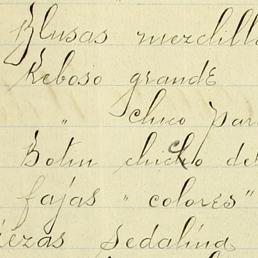 Blusas mezclill
Reboso grande
" chico par
Botin chicho de
fajas " colores"
iezas Sedalina